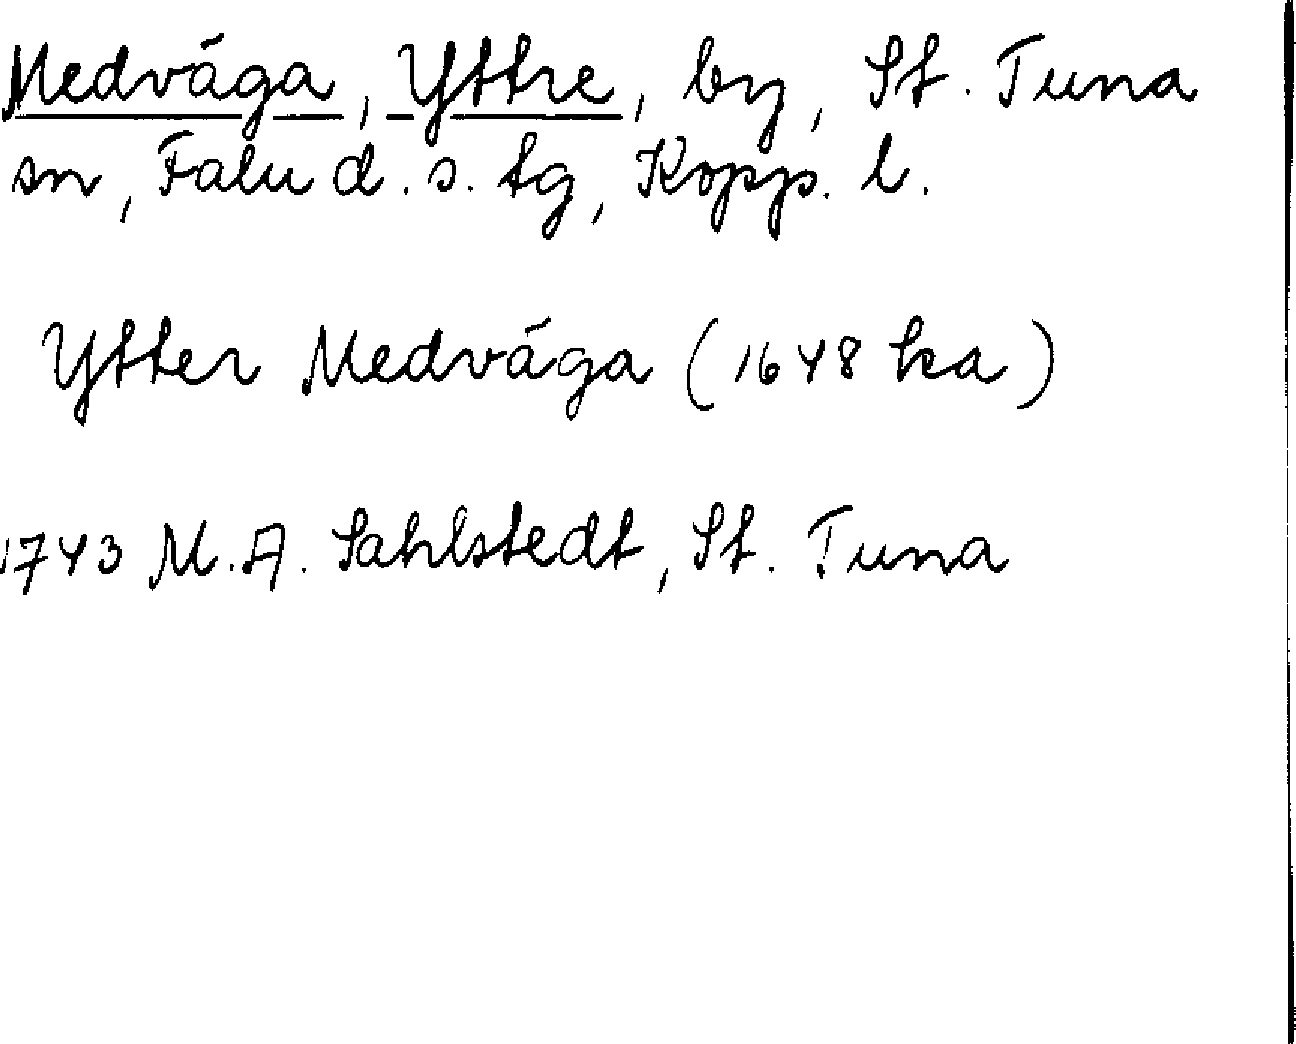 Medvåga, Yttre, by, St. Tuna
sn, Falu d. s. tg, Kopp. l.
Ytter Medvåga (1648 ka)
1743 M. A. Sahlstedt, St. Tuna